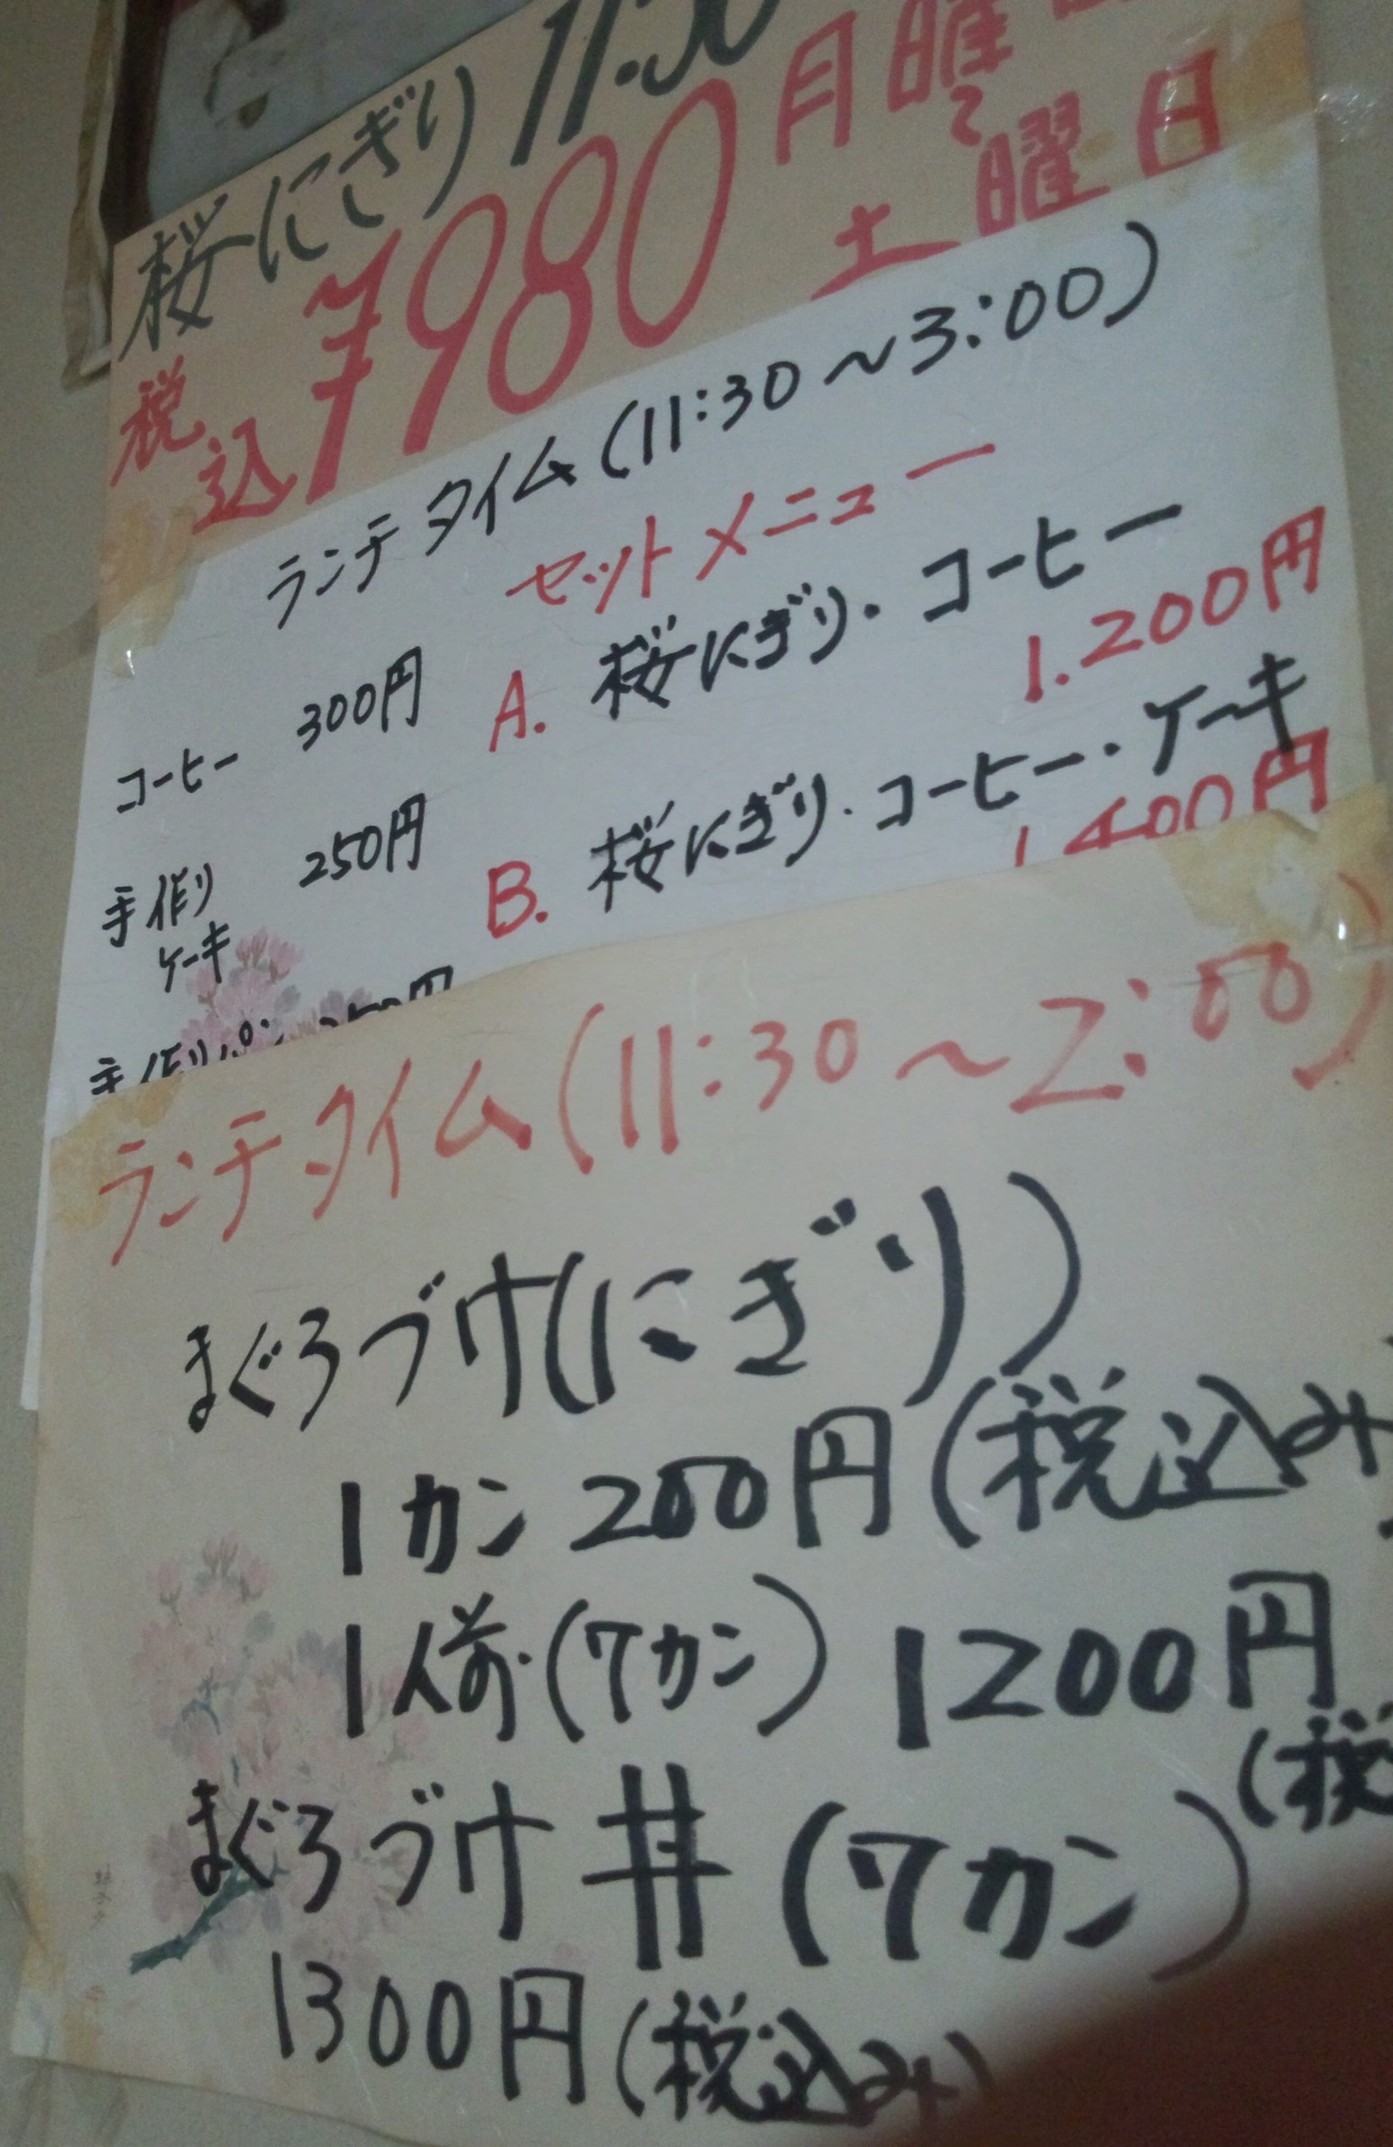 桜にぎり 11:30
税込 ¥980 月曜
土曜日
ランチタイム(11:30～3:00)
セットメニュー
コーヒー 300円 A. 桜にぎり・コーヒー
1.200円
手作り 250円 B. 桜にぎり・コーヒー・ケーキ
ケーキ 1400円
手作りパン
ランチタイム(11:30～2:00)
まぐろづけ(にぎり)
1カン 200円(税込み)
1人前(7カン) 1200円
(税
まぐろづけ丼(7カン)
1300円(税込み)